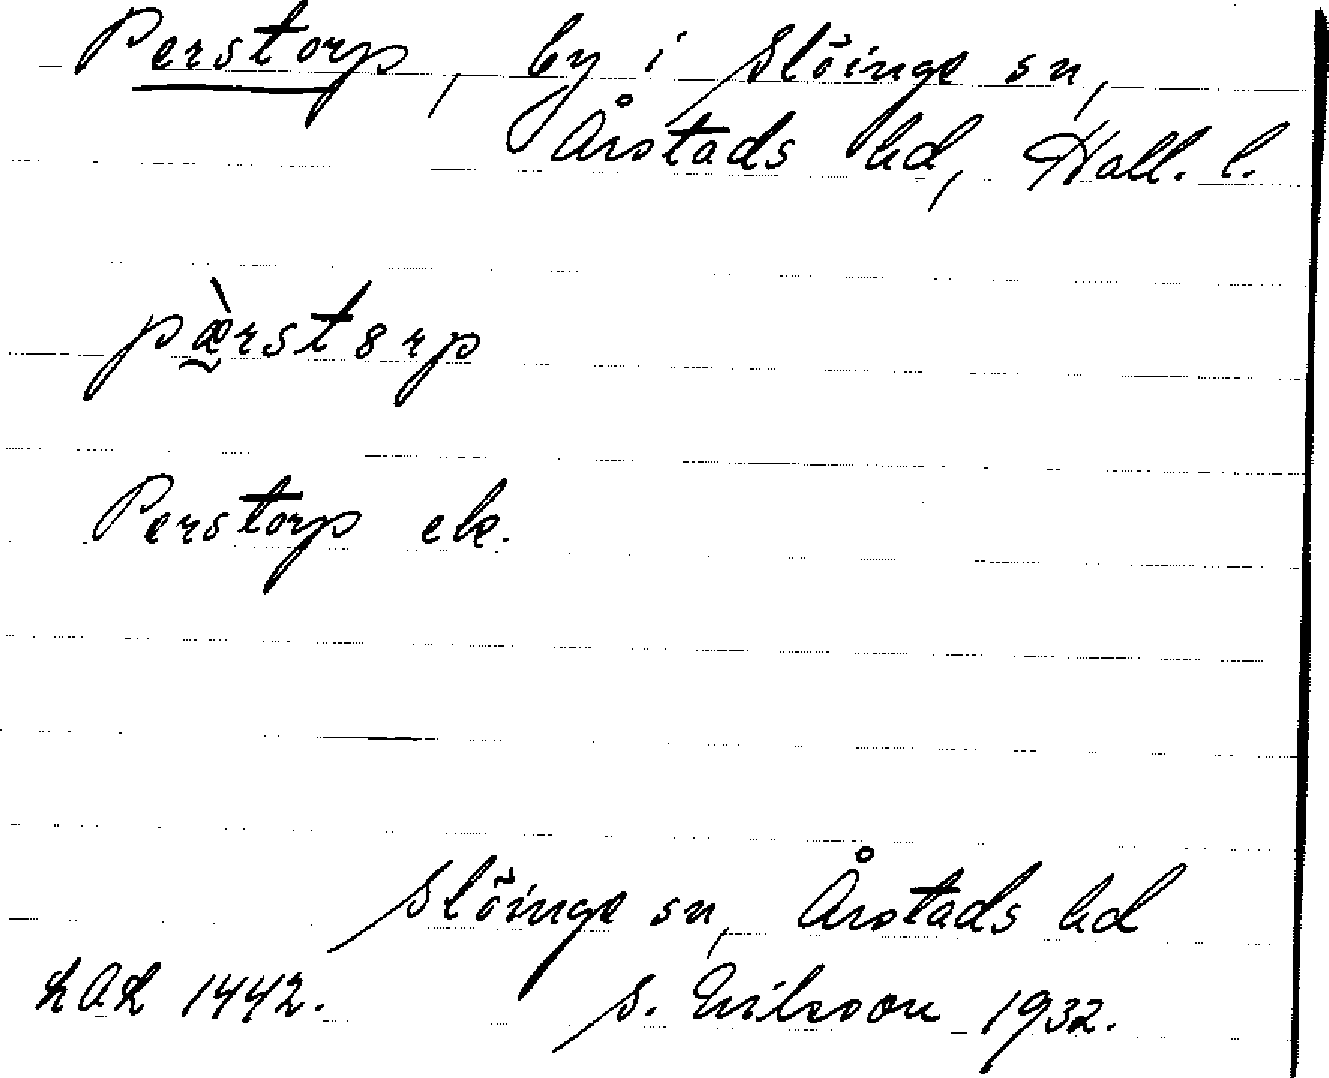 Perstorp, by i Slöinge sn,
Årstads hd, Hall. l.
pæ̀rstorp
Perstorp ek.
Slöinge sn, Årstads hd
LAL 1442. S. Nilsson 1932.